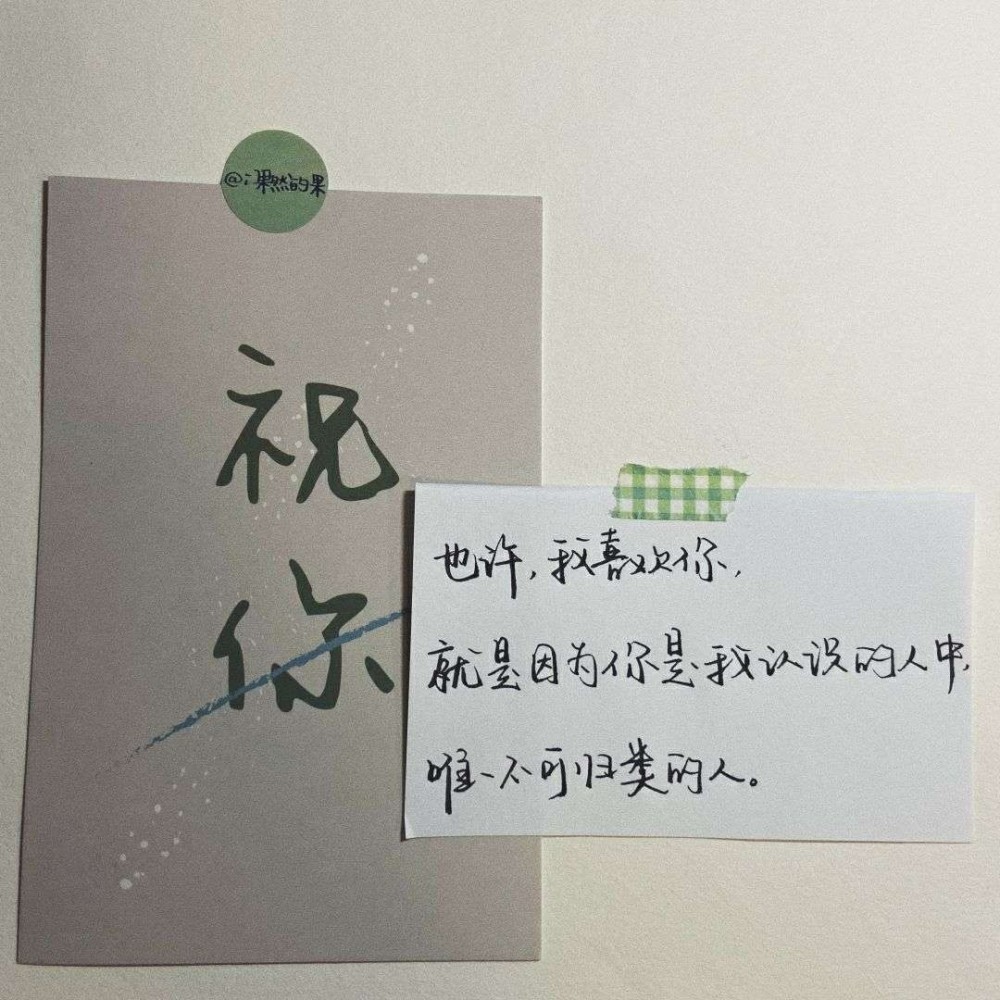 @:果然的果
祝
你
也许,我喜欢你,
就是因为你是我认识的人中,
唯一不可归类的人。